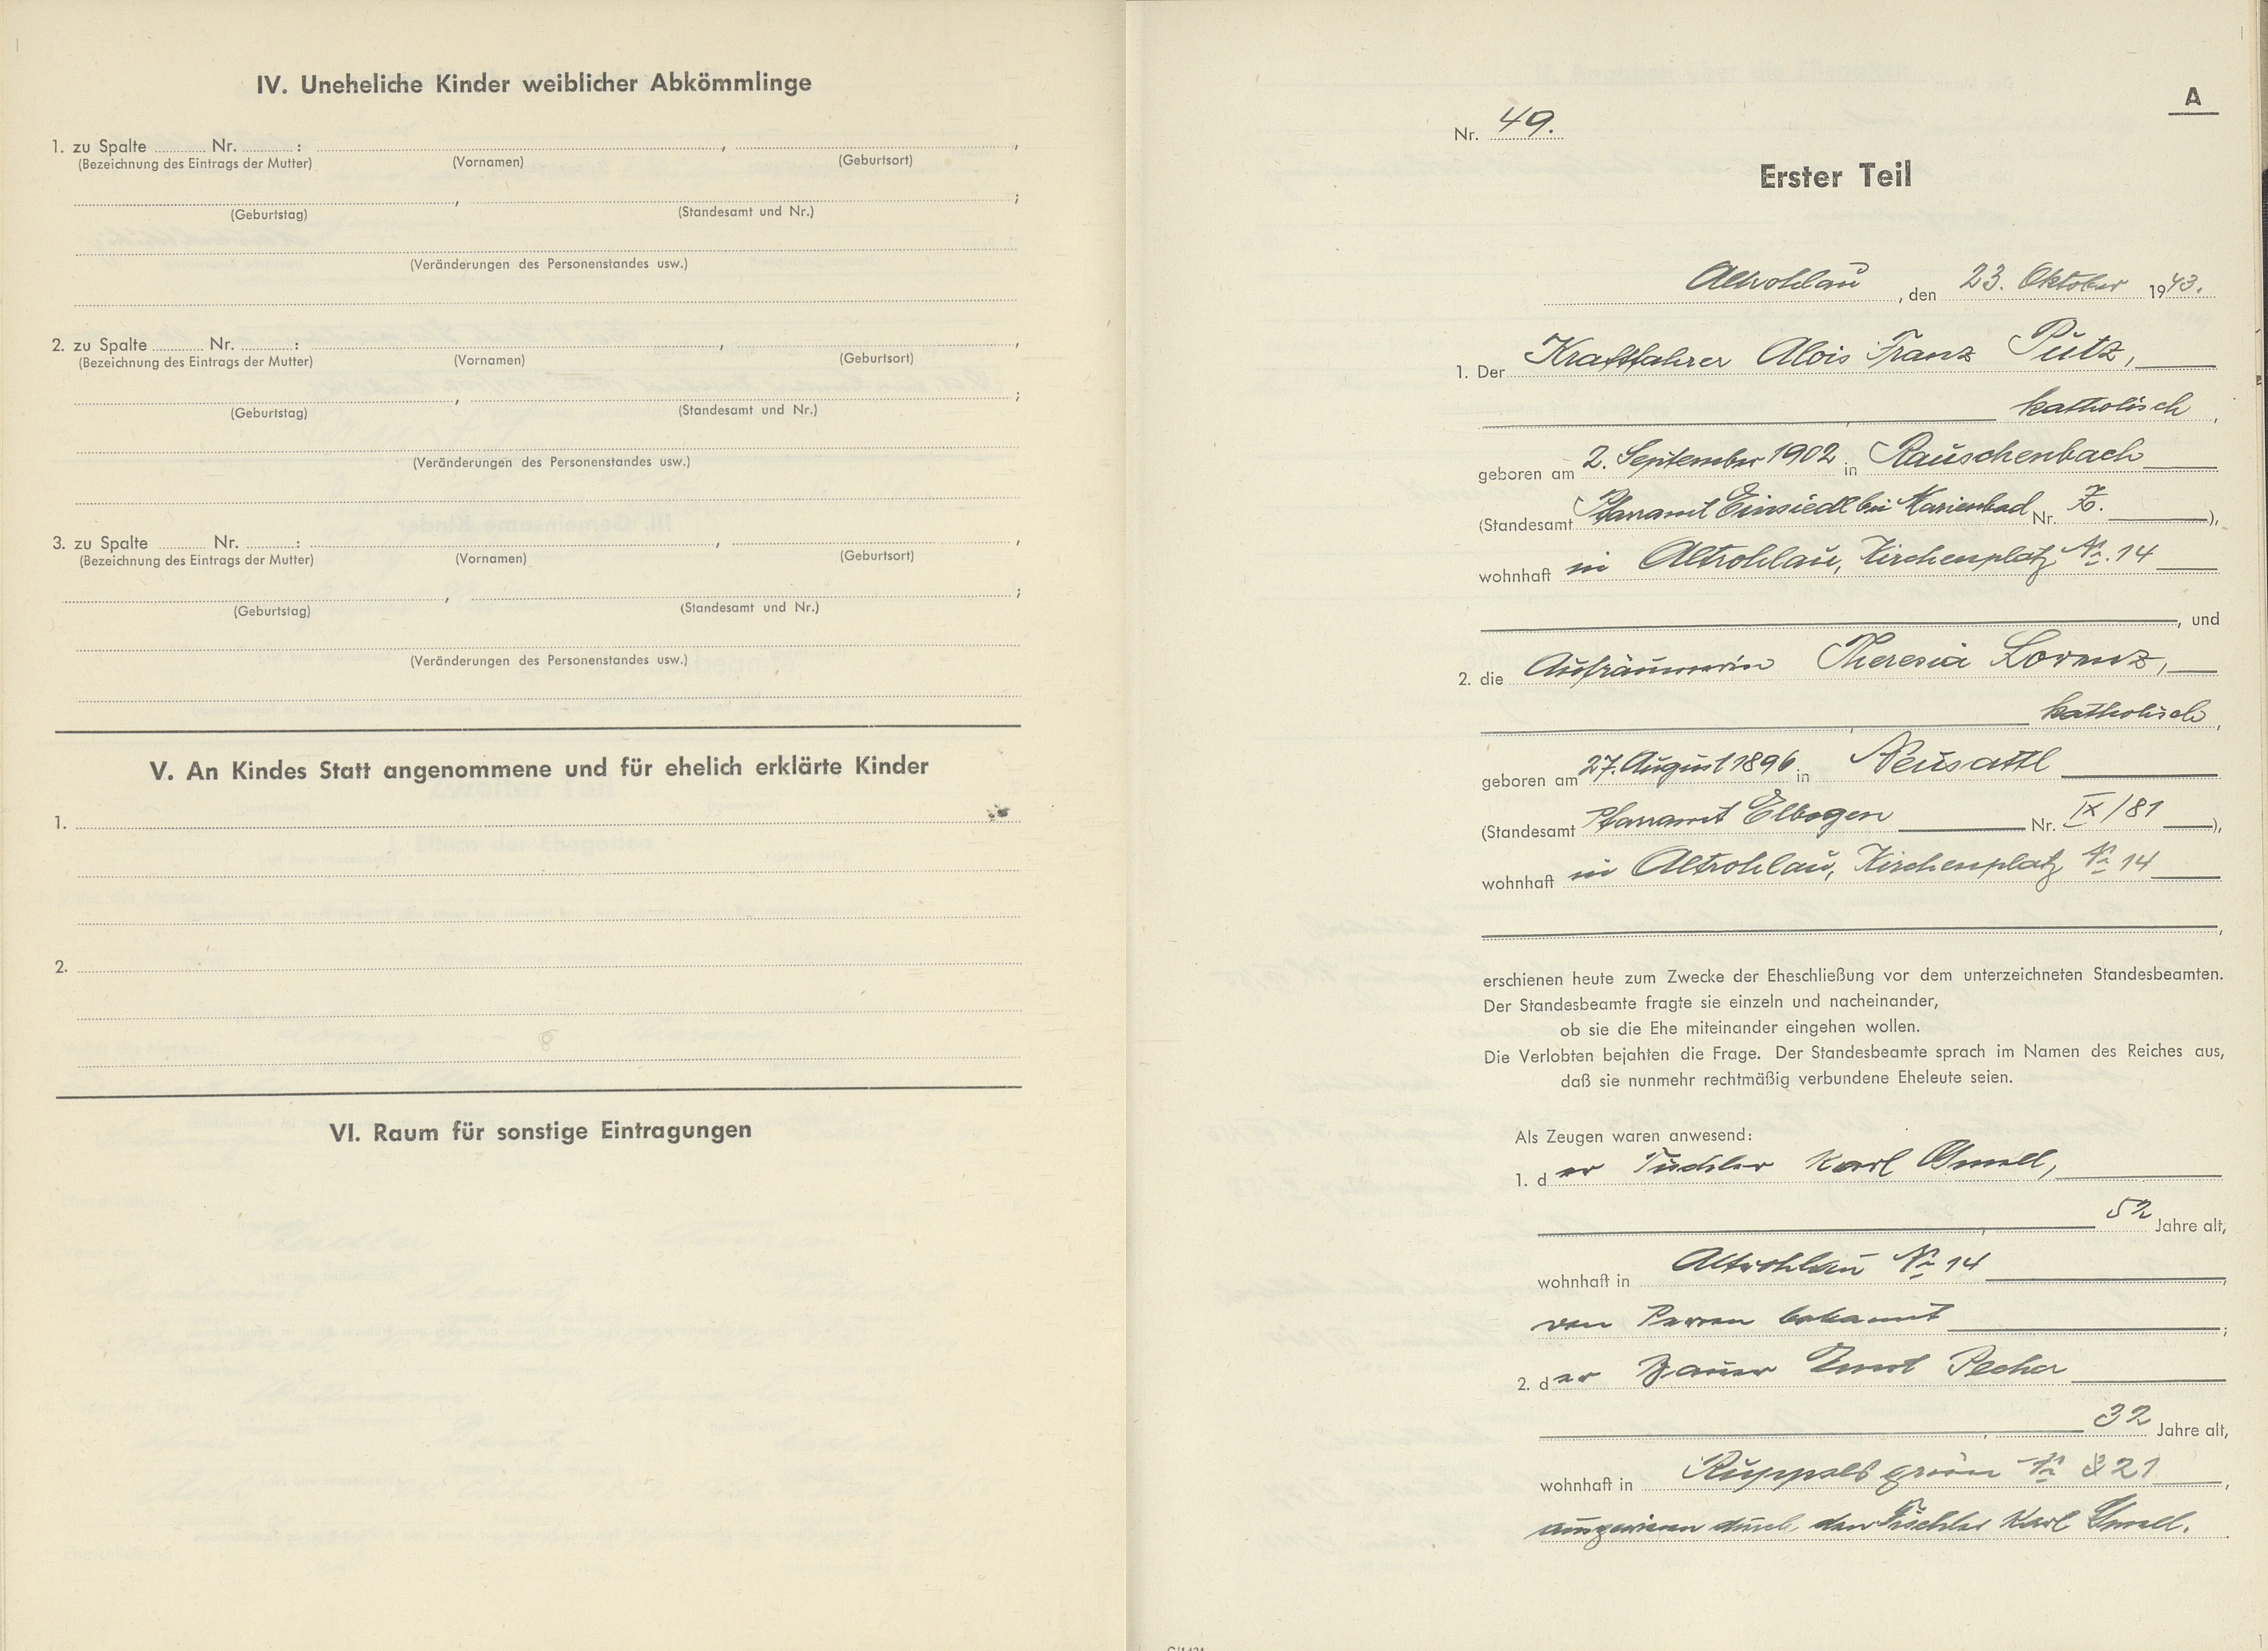 IV. Uneheliche Kinder weiblicher Abkömmlinge
1. zu Spalte ........ Nr. ........ :
(Bezeichnung des Eintrags der Mutter) (Vornamen) (Geburtsort)
(Geburtstag) (Standesamt und Nr.)
(Veränderungen des Personenstandes usw.)
2. zu Spalte ........ Nr. ........ :
(Bezeichnung des Eintrags der Mutter) (Vornamen) (Geburtsort)
(Geburtstag) (Standesamt und Nr.)
(Veränderungen des Personenstandes usw.)
3. zu Spalte ........ Nr. ........ :
(Bezeichnung des Eintrags der Mutter) (Vornamen) (Geburtsort)
(Geburtstag) (Standesamt und Nr.)
(Veränderungen des Personenstandes usw.)
V. An Kindes Statt angenommene und für ehelich erklärte Kinder
1.
2.
VI. Raum für sonstige Eintragungen
A
Nr. 49.
Erster Teil
Altrohlau, den 23. Oktober 1943.
1. Der Kraftfahrer Alois Franz Pütz,
katholisch,
geboren am 2. September 1902 in Rauschenbach
(Standesamt Pfarramt Einsiedl bei Marienbad Nr. Z. ),
wohnhaft in Altrohlau, Kirchenplatz Nr. 14
, und
2. die Aufräumerin Theresia Lorenz,
katholisch,
geboren am 27. August 1896 in Neusattl
(Standesamt Pfarramt Elbogen Nr. IX/81 ),
wohnhaft in Altrohlau, Kirchenplatz Nr 14
erschienen heute zum Zwecke der Eheschließung vor dem unterzeichneten Standesbeamten.
Der Standesbeamte fragte sie einzeln und nacheinander,
ob sie die Ehe miteinander eingehen wollen.
Die Verlobten bejahten die Frage. Der Standesbeamte sprach im Namen des Reiches aus,
daß sie nunmehr rechtmäßig verbundene Eheleute seien.
Als Zeugen waren anwesend:
1. der Tischler Karl
52 Jahre alt,
wohnhaft in Altrohlau Nr 14
von Person bekannt ;
2. der Bauer Ernst Pecher
32 Jahre alt,
wohnhaft in Ruppelsgrün Nr 21
ausgewiesen durch den Tischler Karl